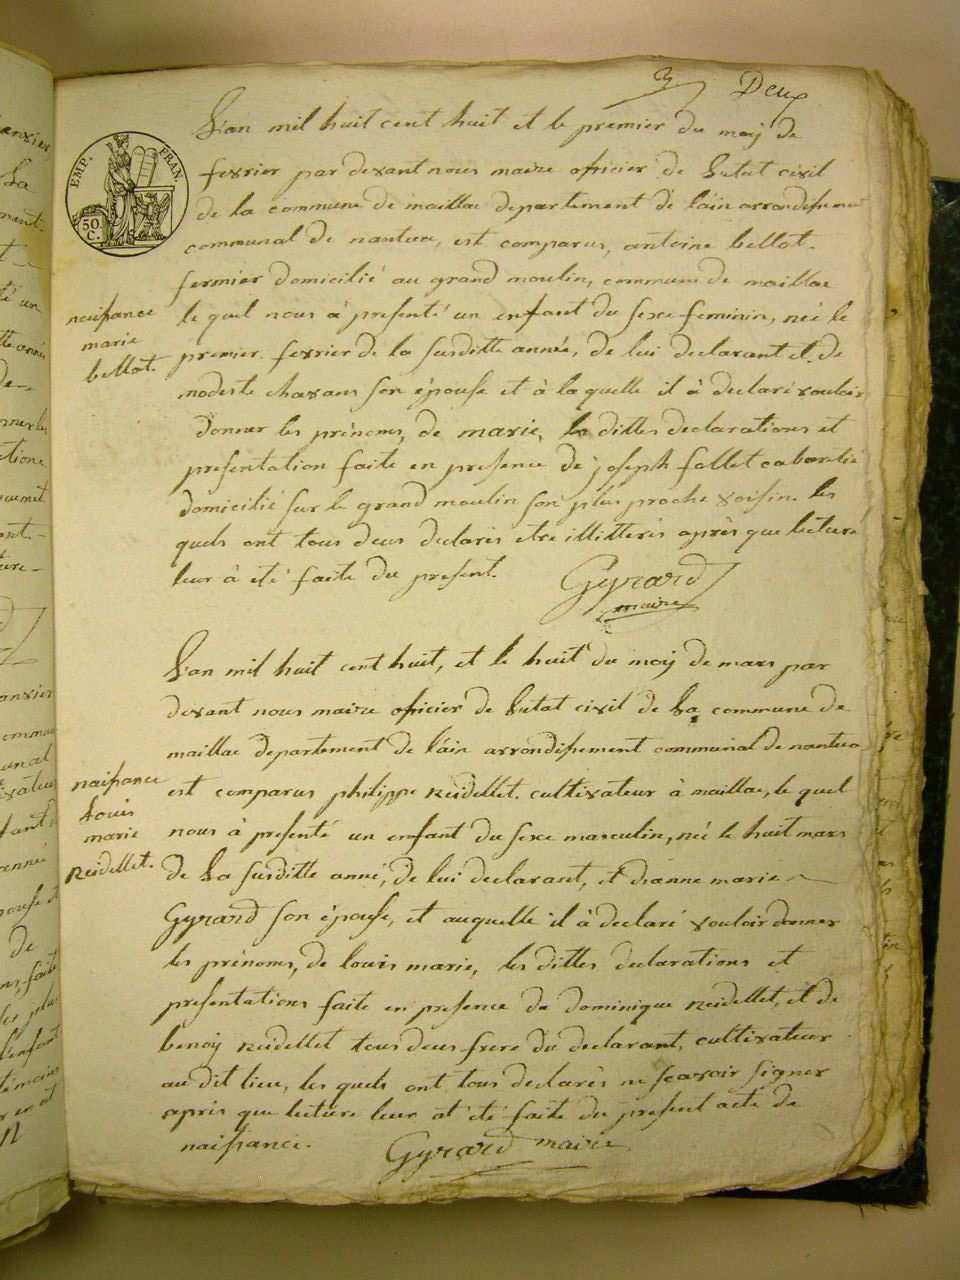 Deux
L'an mil huit cent huit et le premier du moy de
EMP. FRAN.
50 C.
fevrier par devant nous maire oficier de Letat civil
de la commune de maillac departement de l'ain arrondissement
communal de nantua, est comparus, antoine bellot.
fermier domicilié au grand moulin, commune de maillac
naissance
marie
bellot.
le quel nous à presenté un enfant du sexe feminin, née le
premier fevrier de la susditte année, de lui declarant et de
modeste chavans son épouse et à la quelle il à declaré vouloir
donner les prénoms, de marie, les dittes declarations et
presentation faite en presence de joseph follet cabaretié
domicilié sur le grand moulin son plus proche voisin. les
quels ont tous deux declarés etre illitterés après que lecture
leur à été faite du present.
Gyrard
maire
L'an mil huit cent huit, et le huit du moy de mars par
devant nous maire oficier de Letat civil de La commune de
maillac departement de l'ain arrondissement communal de nantua
est comparus philippe Reidellet. cultivateur à maillac, le quel
naissance
Louis
marie
Reidellet.
nous à presenté un enfant du sexe masculin, née le huit mars
de La susditte anné, de lui declarant, et dianne marie
Gyrard son épouse, et auquelle il à declaré vouloir donner
les prénoms, de louis marie, les dittes declarations et
presentations faite en presence de dominique Reidellet, et de
benoy Reidellet tous deux frere du declarant, cultivateur
au dit lieu, les quels ont tous declarés ne scavoir signer
après que lecture leur at été faite du present acte de
naissance.
Gyrard maire